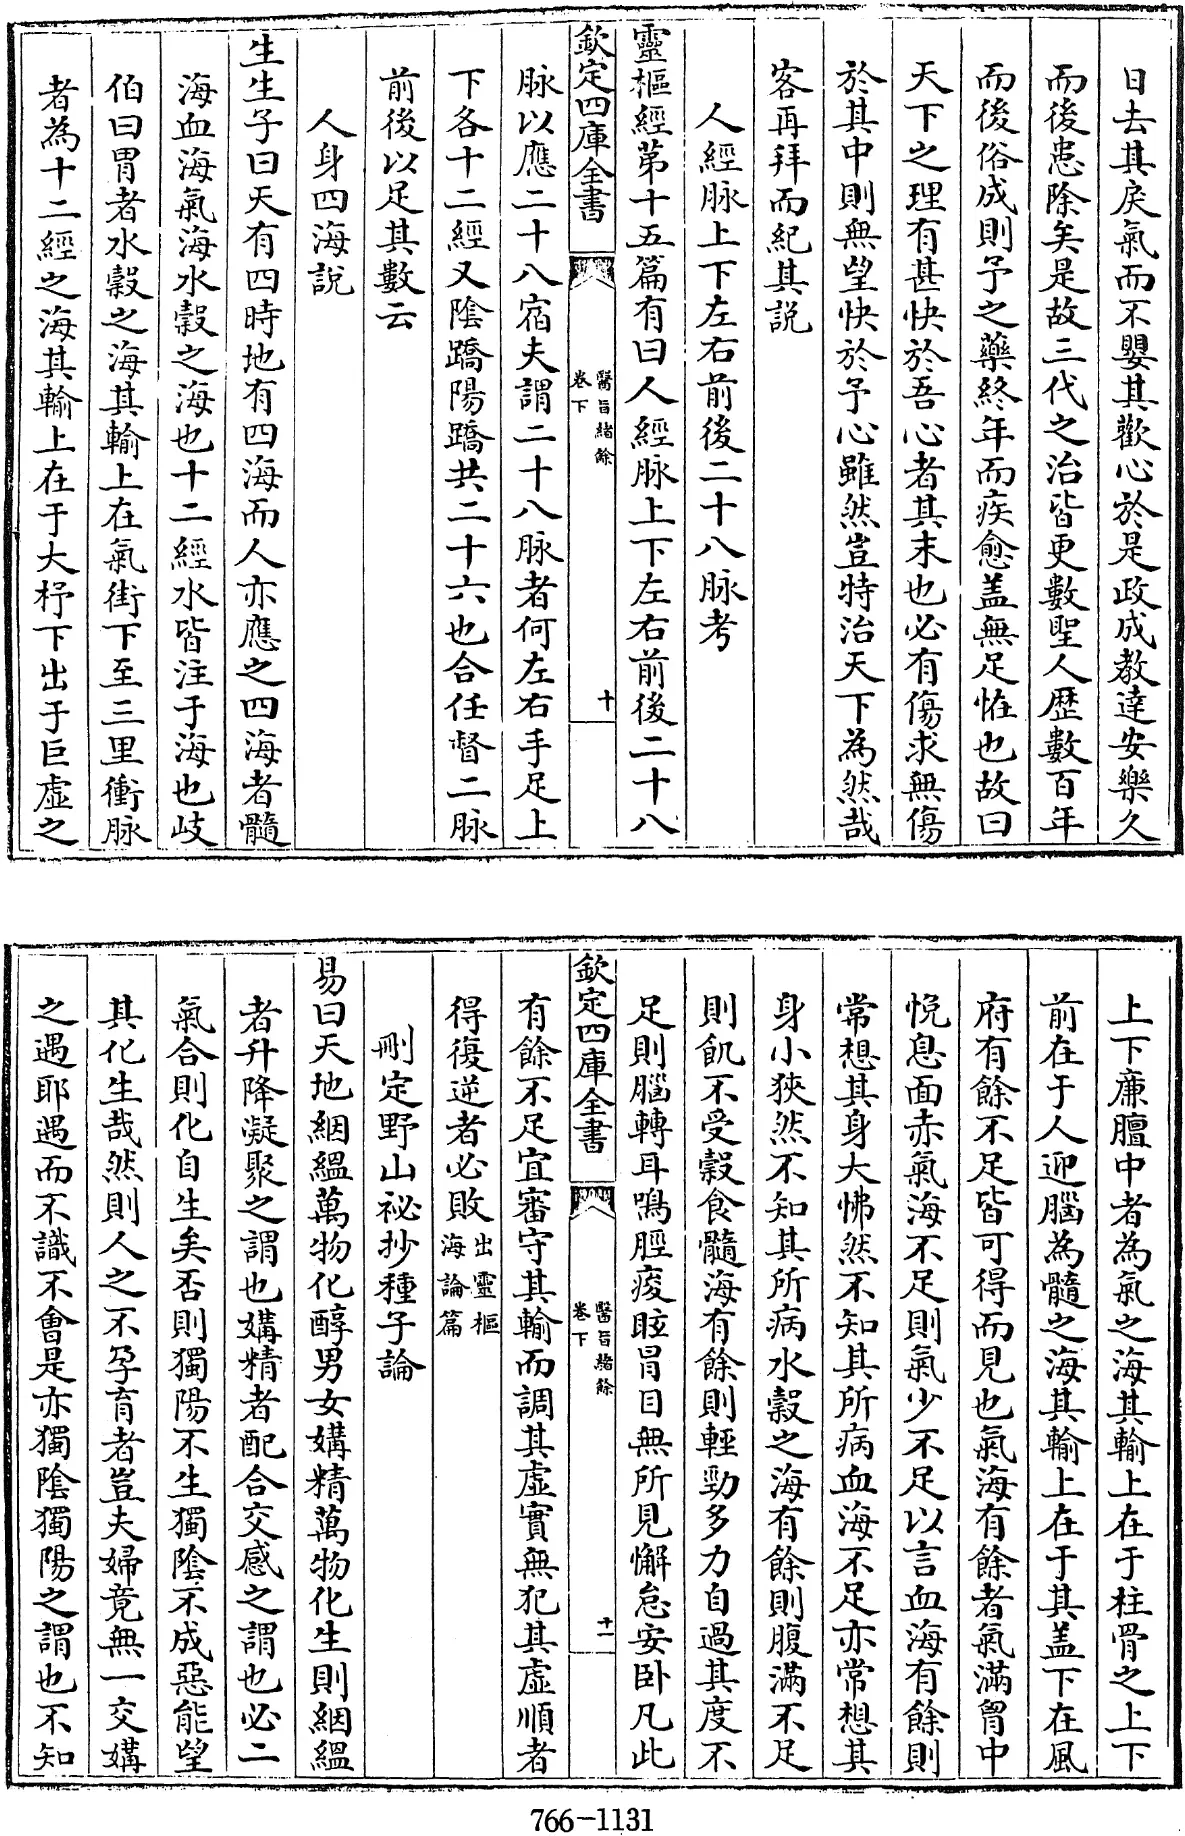 日去其戾氣而不嬰其歡心於是政成教達安樂久
而後患除矣是故三代之治皆更數聖人歷數百年
而後俗成則予之藥終年而疾愈蓋無足恠也故曰
天下之理有甚快於吾心者其末也必有傷求無傷
於其中則無望快於予心雖然豈特治天下為然哉
客再拜而紀其説
人經脉上下左右前後二十八脉考
靈樞經第十五篇有曰人經脉上下左右前後二十八
欽定四庫全書
醫旨緒餘
卷下
十
脉以應二十八宿夫謂二十八脉者何左右手足上
下各十二經又陰蹻陽蹻共二十六也合任督二脉
前後以足其數云
人身四海説
生生子曰天有四時地有四海而人亦應之四海者髓
海血海氣海水穀之海也十二經水皆注于海也岐
伯曰胃者水穀之海其輸上在氣街下至三里衝脉
者為十二經之海其輸上在于大杼下出于巨虛之
上下亷膻中者為氣之海其輸上在于柱骨之上下
前在于人迎腦為髓之海其輸上在于其蓋下在風
府有餘不足皆可得而見也氣海有餘者氣滿胷中
悅息面赤氣海不足則氣少不足以言血海有餘則
常想其身大怫然不知其所病血海不足亦常想其
身小狹然不知其所病水穀之海有餘則腹滿不足
則飢不受穀食髓海有餘則輕勁多力自過其度不
足則腦轉耳鳴脛痠眩冒目無所見懈怠安卧凡此
欽定四庫全書
醫旨緒餘
卷下
十一
有餘不足宜審守其輸而調其虛實無犯其虛順者
得復逆者必敗出靈樞海論篇
刪定野山祕抄種子論
易曰天地絪縕萬物化醇男女媾精萬物化生則絪縕
者升降凝聚之謂也媾精者配合交感之謂也必二
氣合則化自生矣否則獨陽不生獨陰不成惡能望
其化生哉然則人之不孕育者豈夫婦竟無一交媾
之遇耶遇而不識不會是亦獨陰獨陽之謂也不知
766-1131